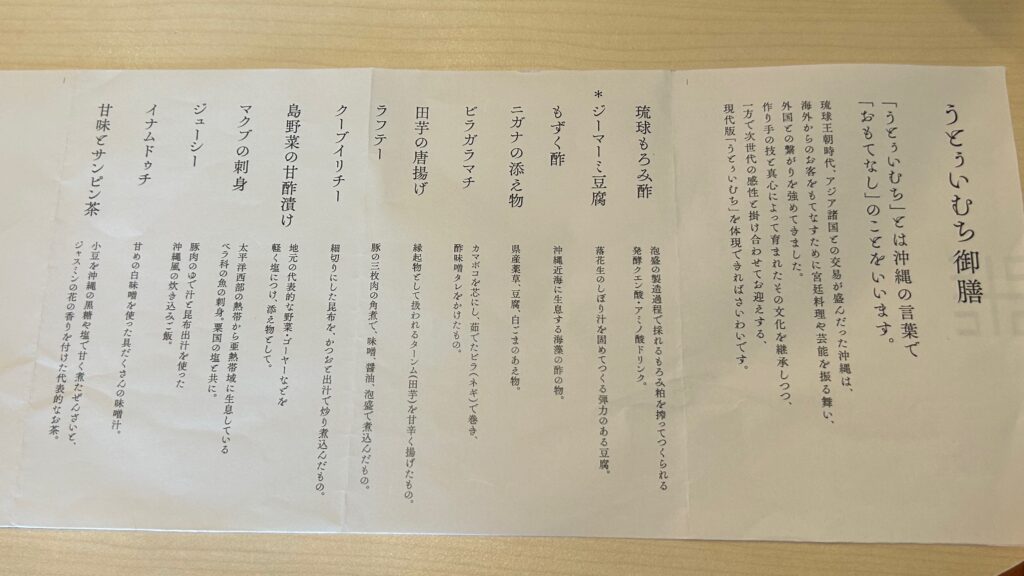 うとぅいむち御膳
「うとぅいむち」とは沖縄の言葉で
「おもてなし」のことをいいます。
琉球王朝時代、アジア諸国との交易が盛んだった沖縄は、
海外からのお客をもてなすために宮廷料理や芸能を振る舞い、
外国との繋がりを強めてきました。
作り手の技と真心によって育まれたその文化を継承しつつ、
一方で次世代の感性と掛け合わせてお迎えする、
現代版「うとぅいむち」を体現できればさいわいです。
琉球もろみ酢
泡盛の製造過程で採れるもろみ粕を搾ってつくられる
発酵クエン酸・アミノ酸ドリンク。
*ジーマーミ豆腐
落花生のしぼり汁を固めてつくる弾力のある豆腐。
もずく酢
沖縄近海に生息する海藻の酢の物。
ニガナの添え物
県産薬草、豆腐、白ごまのあえ物。
ビラガラマチ
カマボコを芯にし、茹でたビラ(ネギ)で巻き、
酢味噌タレをかけたもの。
田芋の唐揚げ
縁起物として扱われるターンム(田芋)を甘辛く揚げたもの。
ラフテー
豚の三枚肉の角煮で、味噌、醤油、泡盛で煮込んだもの。
クーブイリチー
細切りにした昆布を、かつおと出汁で炒り煮込んだもの。
島野菜の甘酢漬け
地元の代表的な野菜・ゴーヤーなどを
軽く塩につけ、添え物として。
マクブの刺身
太平洋西部の熱帯から亜熱帯域に生息している
ベラ科の魚の刺身。粟国の塩と共に。
ジューシー
豚肉のゆで汁と昆布出汁を使った
沖縄風の炊き込みご飯。
イナムドゥチ
甘めの白味噌を使った具だくさんの味噌汁。
甘味とサンピン茶
小豆を沖縄の黒糖や塩で甘く煮たぜんざいと、
ジャスミンの花の香りを付けた代表的なお茶。